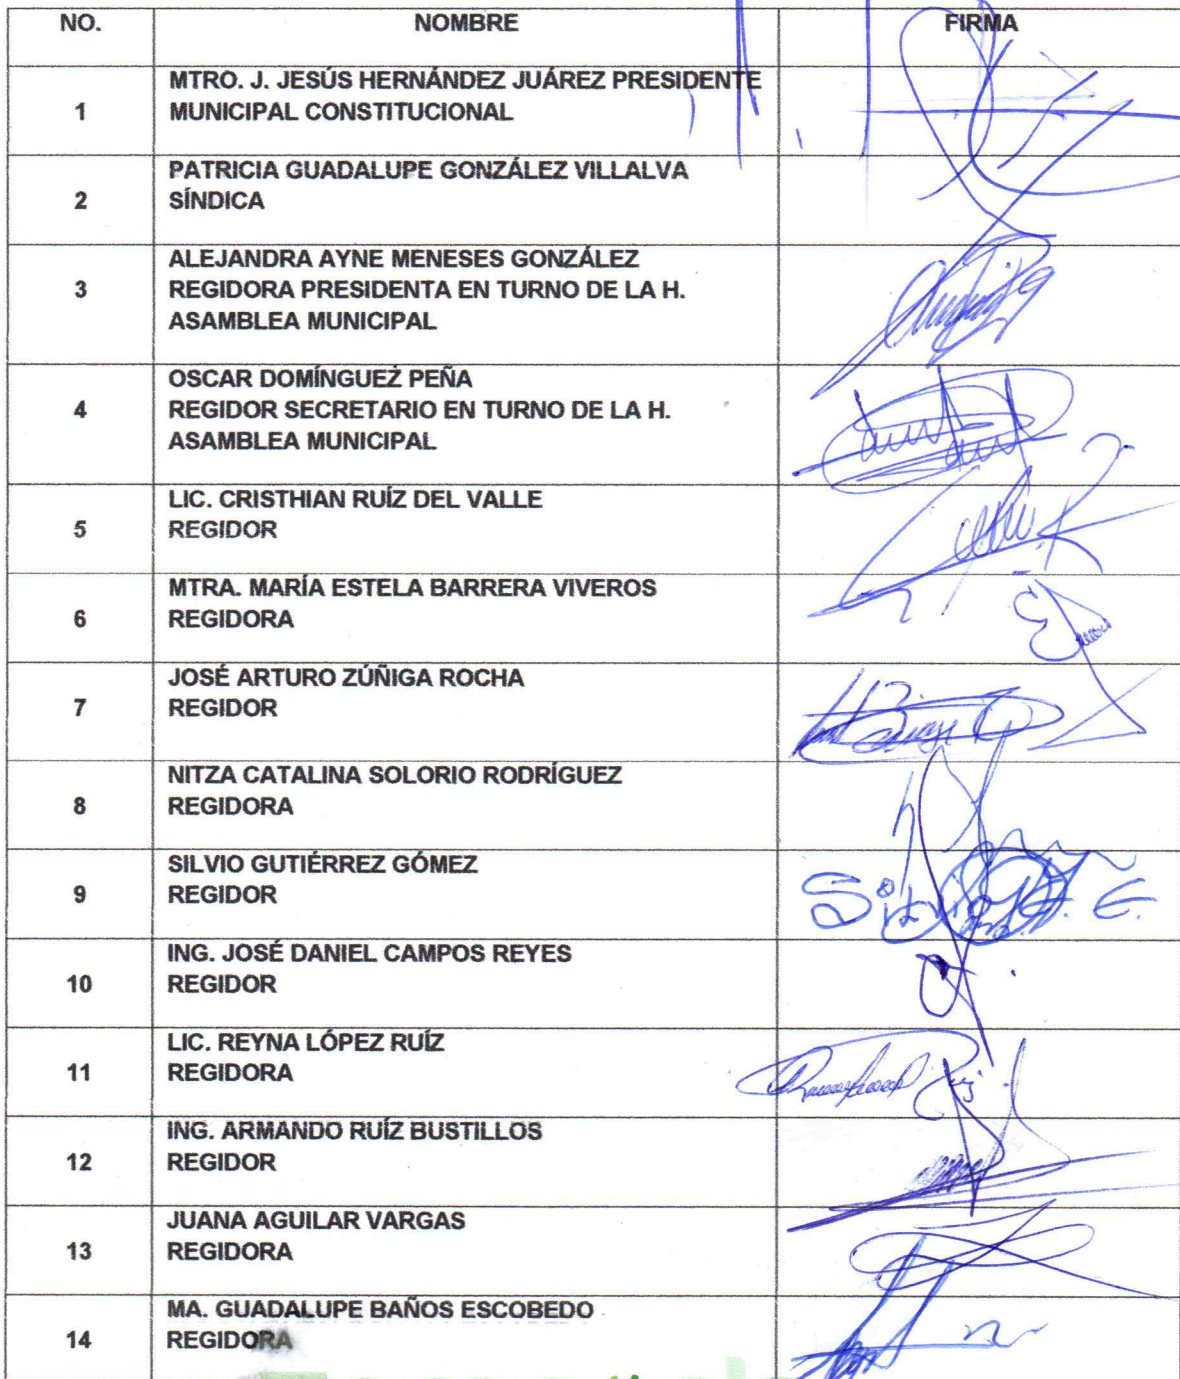 NO. NOMBRE FIRMA
MTRO. J. JESÚS HERNÁNDEZ JUÁREZ PRESIDENTE
1 MUNICIPAL CONSTITUCIONAL
PATRICIA GUADALUPE GONZÁLEZ VILLALVA
2 SÍNDICA
ALEJANDRA AYNE MENESES GONZÁLEZ
3 REGIDORA PRESIDENTA EN TURNO DE LA H.
ASAMBLEA MUNICIPAL
OSCAR DOMÍNGUEZ PEÑA
4 REGIDOR SECRETARIO EN TURNO DE LA H.
ASAMBLEA MUNICIPAL
LIC. CRISTHIAN RUÍZ DEL VALLE
5 REGIDOR
MTRA. MARÍA ESTELA BARRERA VIVEROS
6 REGIDORA
JOSÉ ARTURO ZÚÑIGA ROCHA
7 REGIDOR
NITZA CATALINA SOLORIO RODRÍGUEZ
8 REGIDORA
SILVIO GUTIÉRREZ GÓMEZ
9 REGIDOR
ING. JOSÉ DANIEL CAMPOS REYES
10 REGIDOR
LIC. REYNA LÓPEZ RUÍZ
11 REGIDORA
ING. ARMANDO RUÍZ BUSTILLOS
12 REGIDOR
JUANA AGUILAR VARGAS
13 REGIDORA
MA. GUADALUPE BAÑOS ESCOBEDO
14 REGIDORA